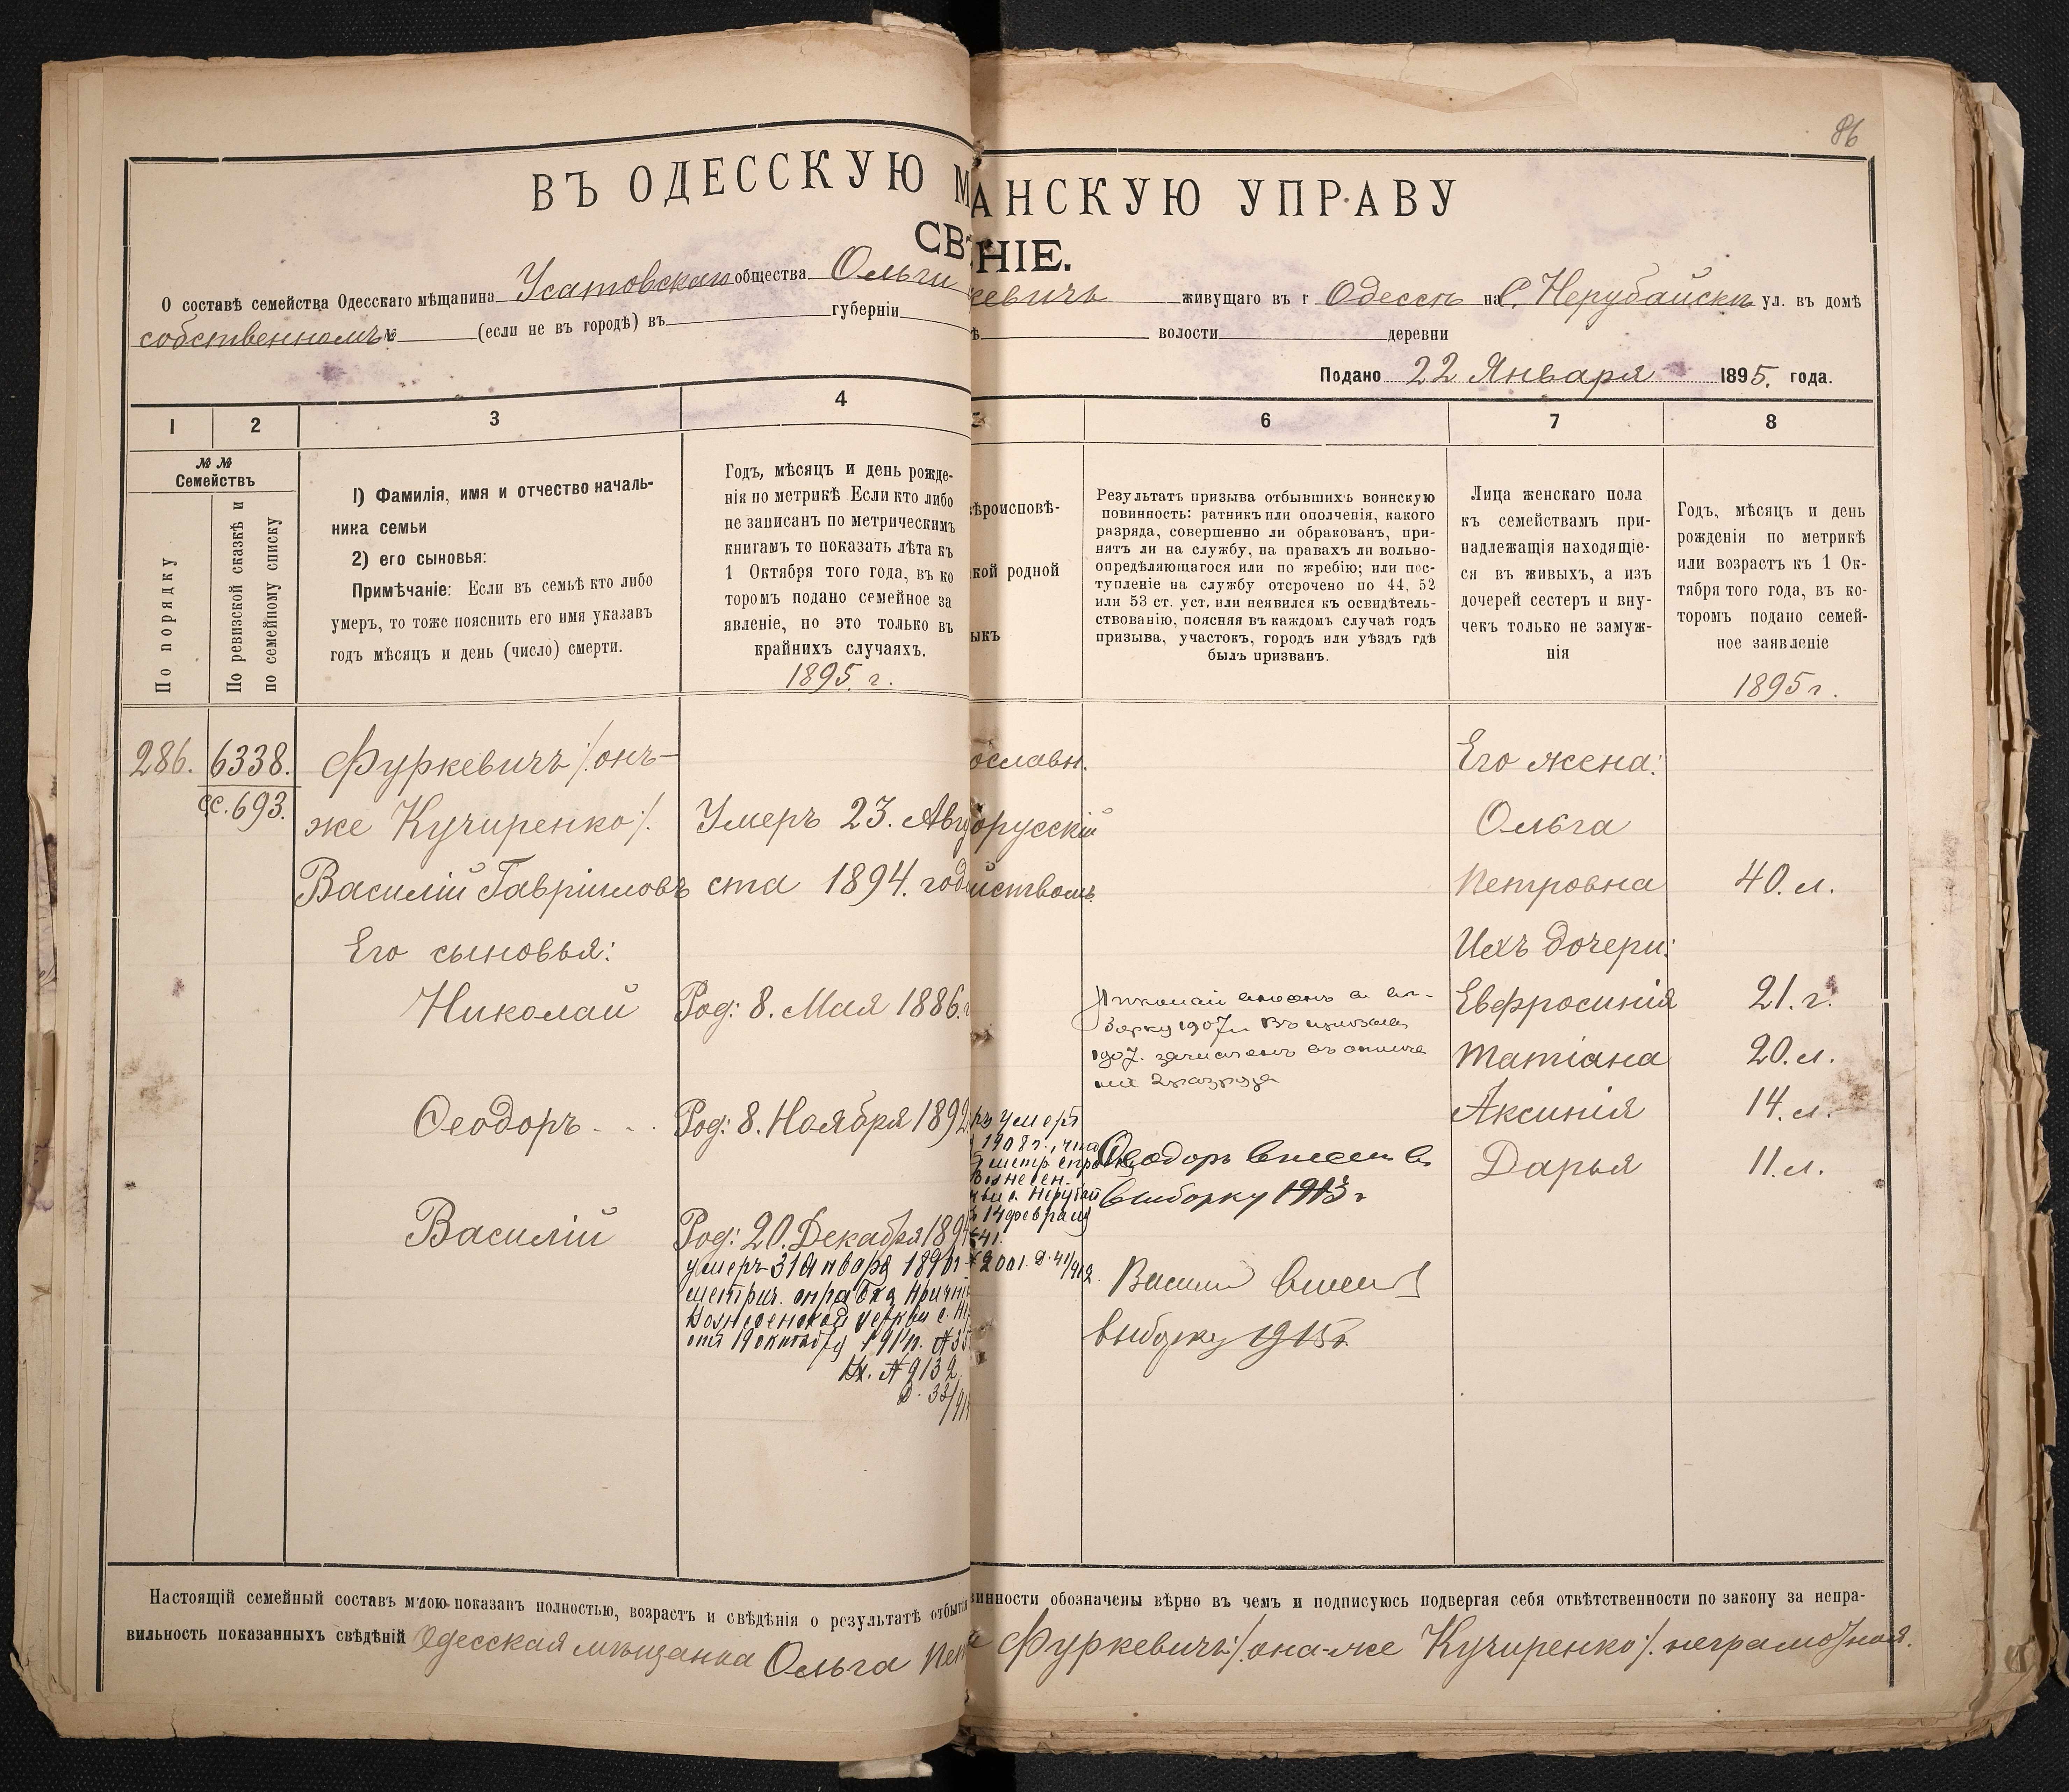 86
ВЪ ОДЕССКУЮ М АНСКУЮ УПРАВУ
СВ НІЕ.
О составѣ семейства Одесскаго мѣщанина Усатовскаго общества Ольги кевичъ живущаго въ г Одессѣ на С. Нерубайскѣ ул. въ домѣ
собственномъ № (если не въ городѣ) въ губерніи ѣ волости деревни
Подано 22 Января 1895. года.
1 2 3 4 5 6 7 8
№ № Семействъ
По порядку
По ревизской сказкѣ и
по семейному списку
1) Фамилія, имя и отчество началь-
ника семьи
2) его сыновья:
Примѣчаніе: Если въ семьѣ кто либо
умеръ, то тоже пояснить его имя указавъ
годъ мѣсяцъ и день (число) смерти.
Годъ, мѣсяцъ и день рожде-
нія по метрикѣ Если кто либо
не записанъ по метрическимъ
книгамъ то показать лѣта къ
1 Октября того года, въ ко
торомъ подано семейное за
явленіе, но это только въ
крайнихъ случаяхъ.
1895. г.
ѣроисповѣ-
кой родной
ыкъ
Результатъ призыва отбывшихъ воинскую
повинность: ратникъ или ополченія, какого
разряда, совершенно ли обракованъ, при-
нятъ ли на службу, на правахъ ли вольно-
опредѣляющагося или по жребію; или пос-
тупленіе на службу отсрочено по 44, 52
или 53 ст. уст, или неявился къ освидѣтель-
ствованію, поясняя въ каждомъ случаѣ годъ
призыва, участокъ, городъ или уѣздъ гдѣ
былъ призванъ.
Лица женскаго пола
къ семействамъ при-
надлежащія находящіе-
ся въ живыхъ, а изъ
дочерей сестеръ и вну-
чекъ только не замуж-
нія
Годъ, мѣсяцъ и день
рожденія по метрикѣ
или возрастъ къ 1 Ок-
тября того года, въ ко-
торомъ подано семей-
ное заявленіе
1895 г.
286. 6338. Фуркевичъ /:онъ- ославн. Его жена:
с.с. 693. же Кучиренко:/. Умеръ 23. Авгу орусскій Ольга
Василій Гавріиловъ ста 1894. год иствомъ Петровна 40. л.
Его сыновья: Ихъ дочери:
Николай Род: 8. Мая 1886. г Евфросинія 21. г.
Николай внесенъ в вы-
борку 1907 г. Въ призывъ
1907. зачисленъ въ ополче
ніе 2 разряда
Татіана 20. л.
Аксинія 14. л.
Ѳеодоръ - . . Род: 8. Ноября 1892
ръ умеръ
1908 г.,
метр. справка
Вознесен.
с. Неруbай
14 февраля
№ 2001. Д. 41/912.
Ѳеодоръ внесенъ в
выборку 1913 г
Дарья 11. л.
Василій Род: 20. Декабря 189
умеръ 31 Января
метрич. справка причта
Вознесенской церкви с. Н
отъ 19 октября 191 г. №
Вх. № 9132
Д. 33/91
Василій внесен
выборку 1915 г.
Настоящій семейный составъ мною показанъ полностью, возрастъ и свѣдѣнія о результатѣ отбытія винности обозначены вѣрно въ чемъ и подписуюсь подвергая себя отвѣтственности по закону за непра-
вильность показанныхъ свѣдѣній Одесская мѣщанка Ольга Пет Фуркевичъ /:она-же Кучиренко:/. неграмотная.